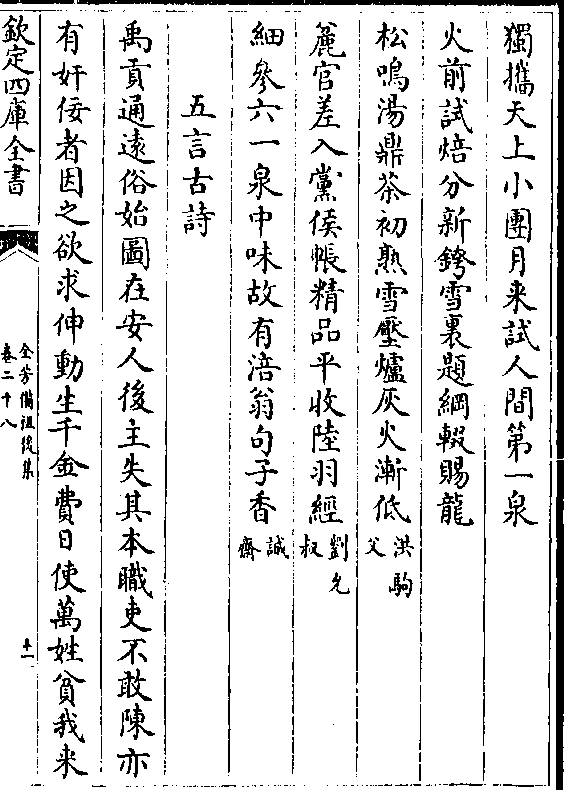 獨攜天上小團月来試人間第一泉
火前試焙分新銙雪裏題綱輟賜龍
松鳴湯鼎茶初熟雪壓爐灰火漸低洪駒父
麄官差入黨侯帳精品平收陸羽經劉允叔
細參六一泉中味故有涪翁句子香誠齋
五言古詩
禹貢通遠俗始圖在安人後主失其本職吏不敢陳亦
有奸佞者因之欲求伸動生千金費日使萬姓貧我来
欽定四庫全書
全芳備祖後集
卷二十八
十一